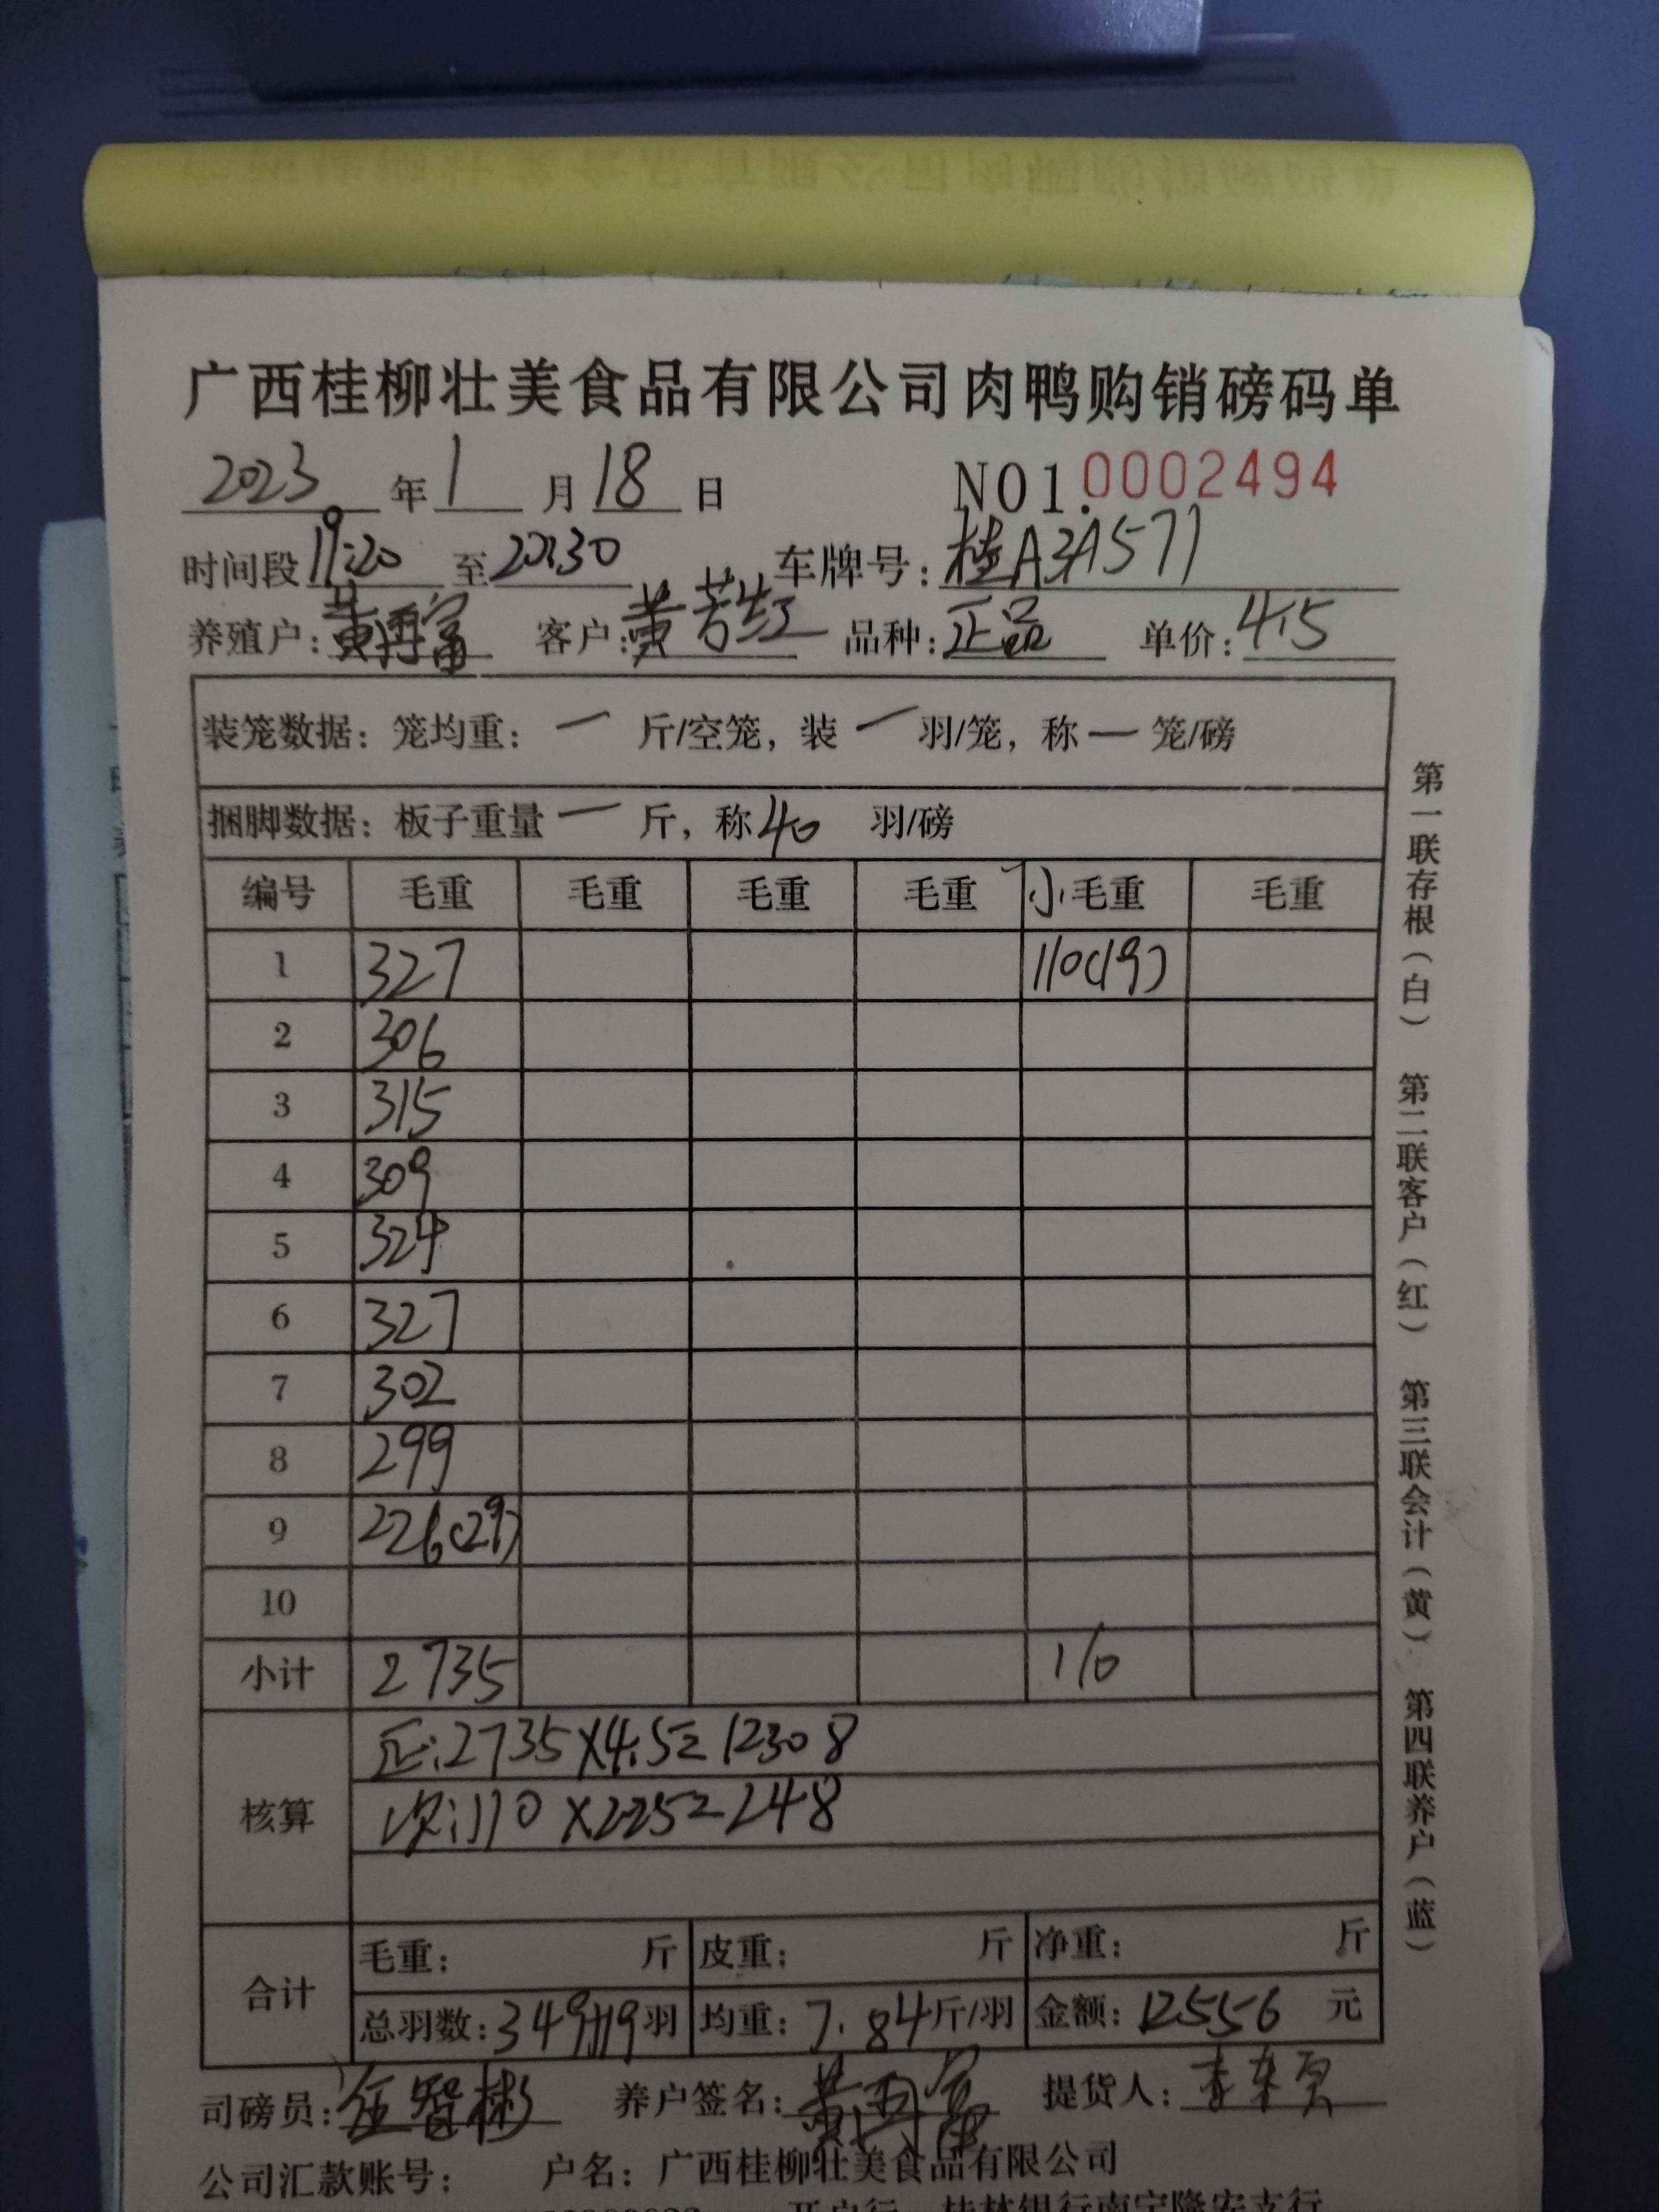 广西桂柳壮美食品有限公司肉鸭购销磅码单
2023 年 1 月 18 日 NO1.0002494
时间段 19:20 至 20:30 车牌号: 桂A3A571
养殖户: 黄再富 客户: 黄芳红 品种: 正品 单价: 4.5
装笼数据: 笼均重: 一 斤/空笼, 装 一 羽/笼, 称 一 笼/磅
捆脚数据: 板子重量 一 斤, 称 40 羽/磅
编号 毛重 毛重 毛重 毛重 小 毛重 毛重
1 327 110(19)
2 306
3 315
4 309
5 324
6 327
7 302
8 299
9 226(29)
10
小计 2735 110
核算
正:2735×4.5=12308
次:110×2.25=248
合计
毛重: 斤 皮重: 斤 净重: 斤
总羽数: 349+19 羽 均重: 7.84 斤/羽 金额: 12556 元
司磅员: 伍智彬 养户签名: 黄再富 提货人:
公司汇款账号: 户名: 广西桂柳壮美食品有限公司
开户行 桂林银行南宁隆安支行
第一联存根(白) 第二联客户(红) 第三联会计(黄) 第四联养户(蓝)